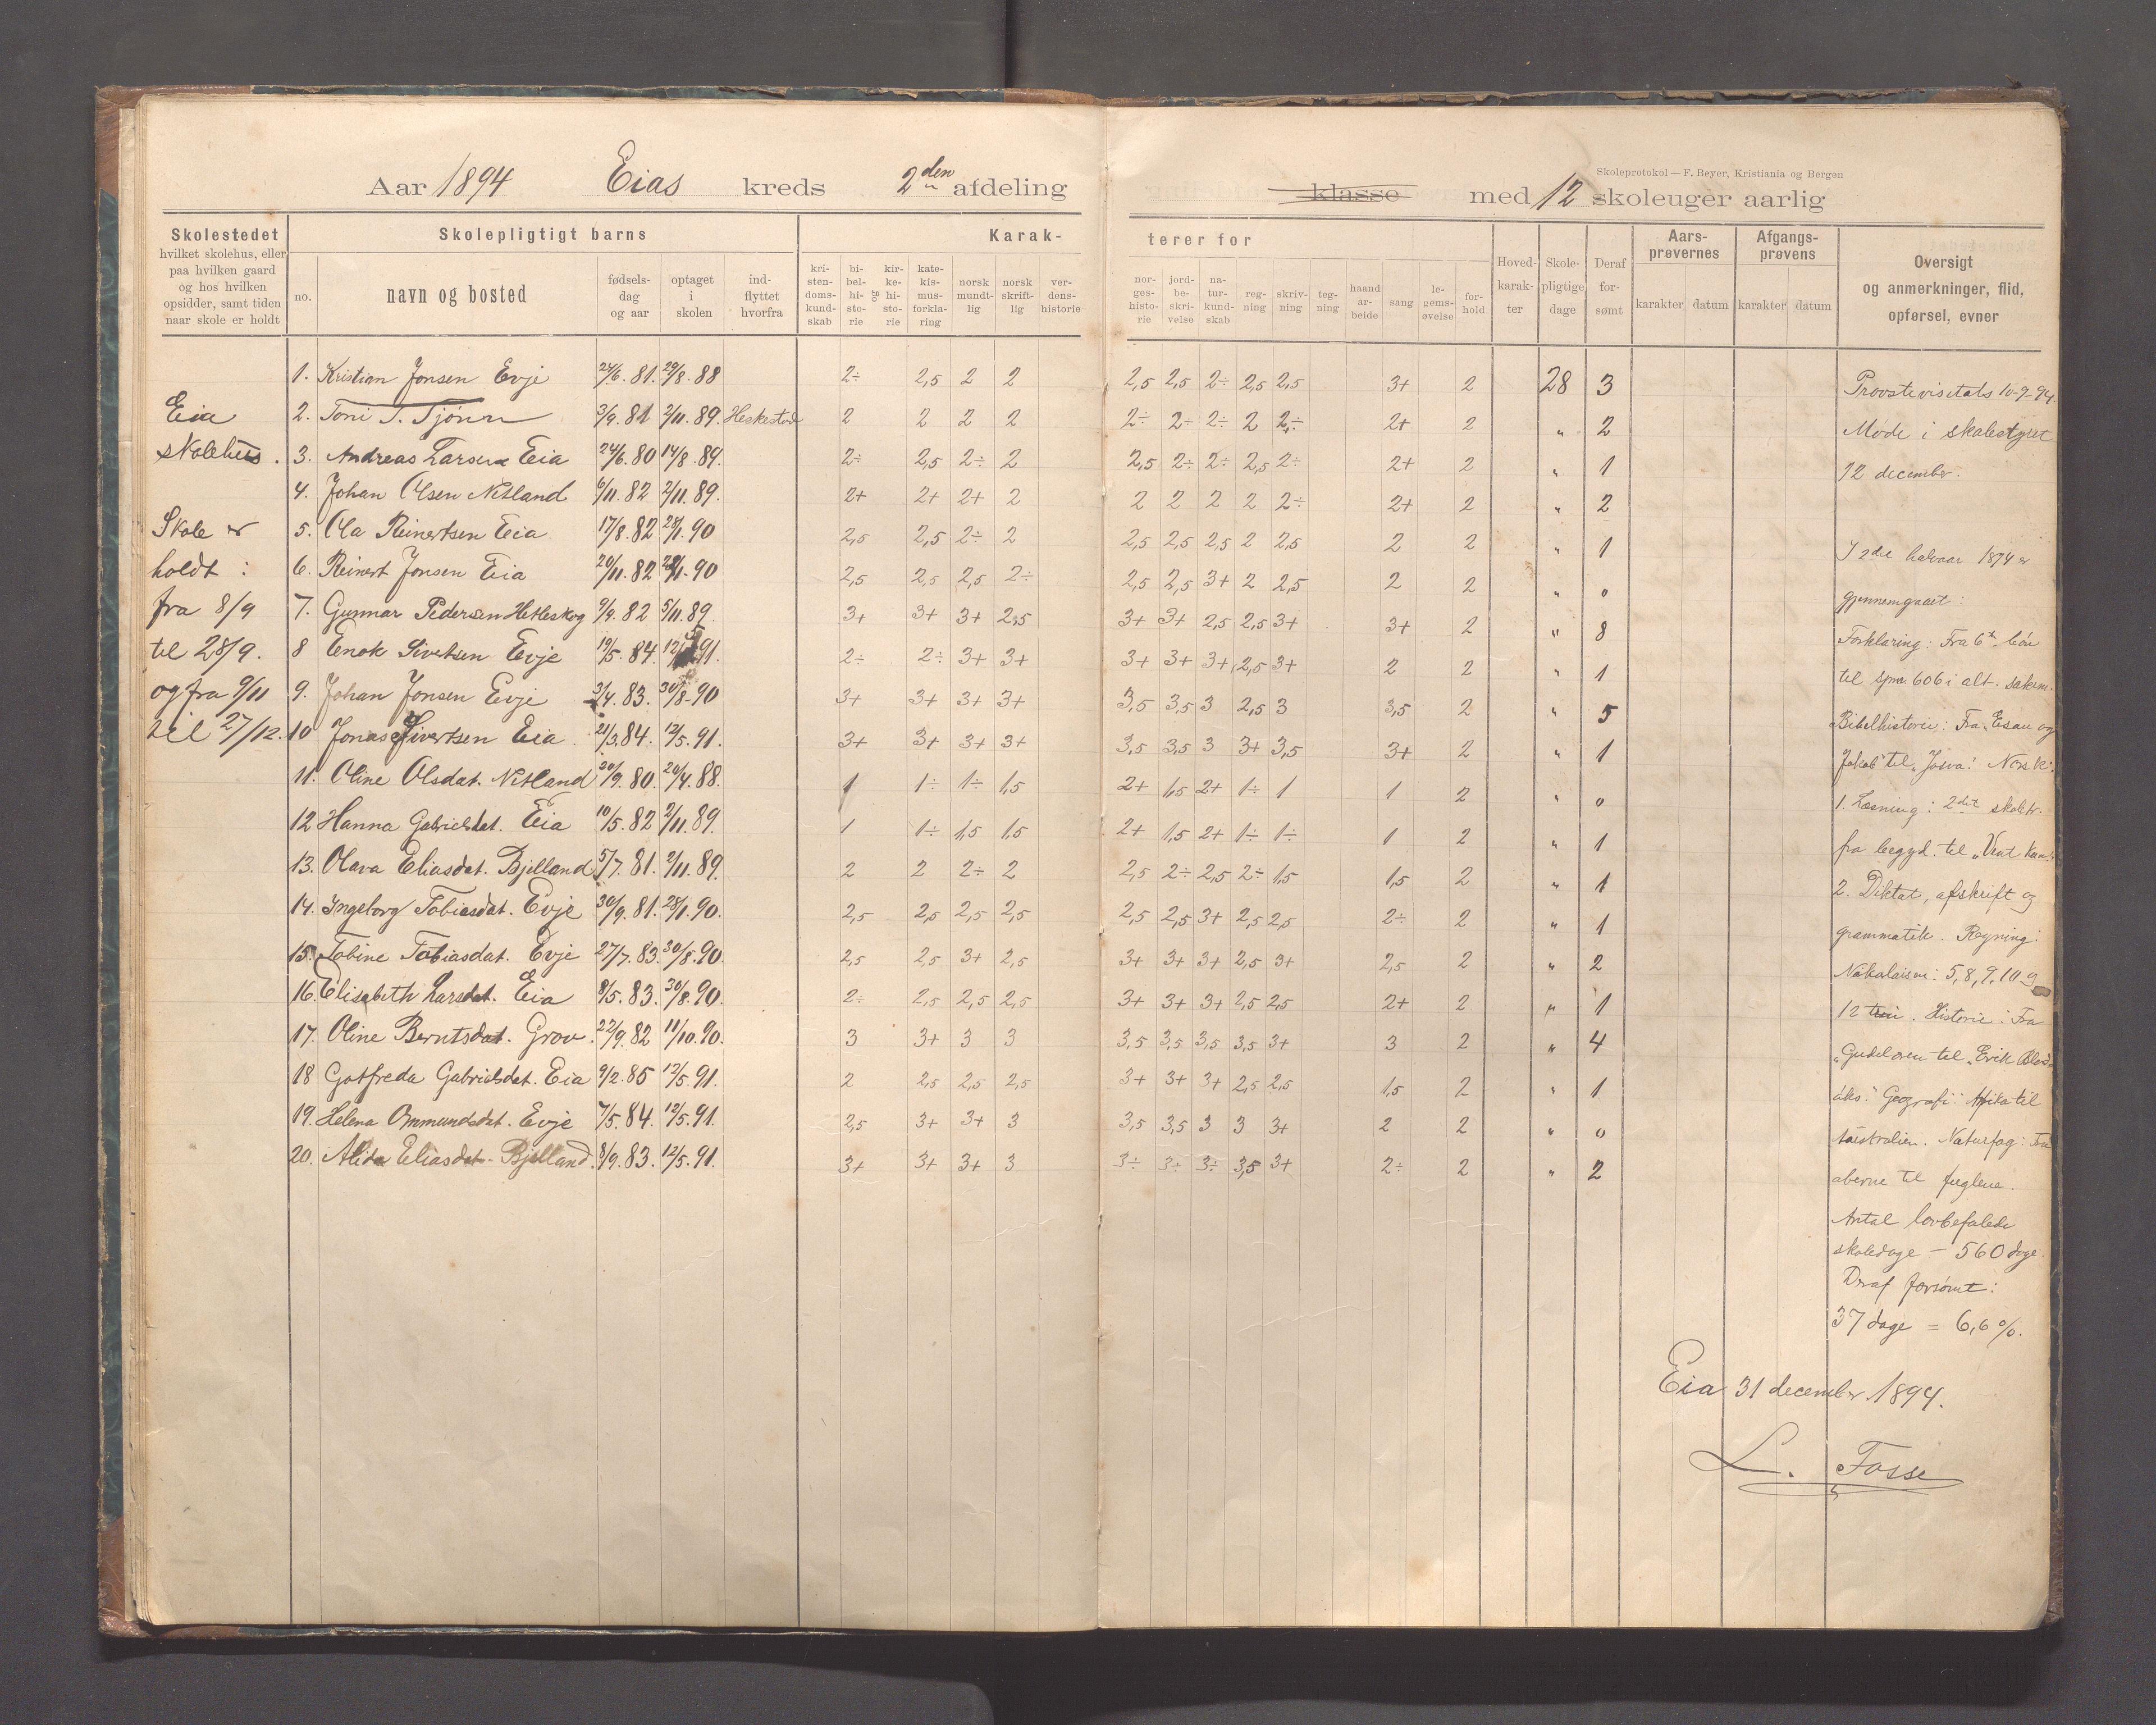 Skoleprotokol — F. Beyer, Kristiania og Bergen
Aar 1894 Eias kreds 2den afdeling klasse med 12 skoleuger aarlig
Skolestedet
hvilket skolehus, eller
paa hvilken gaard
og hos hvilken
opsidder, samt tiden
naar skole er holdt
Skolepligtigt barns
no. navn og bosted
fødsels-
dag
og aar
optaget
i
skolen
ind-
flyttet
hvorfra
Karak- terer for
kri-
sten-
doms-
kund-
skab
bi-
bel-
hi-
sto-
rie
og
kir-
ke-
hi-
sto-
rie
kate-
kis-
mus-
forkla-
ring
norsk
mundt-
lig
norsk
skrift-
lig
ver-
dens-
historie
nor-
ges-
histo-
rie
jord-
be-
skri-
velse
na-
tur-
kund-
skab
reg-
ning
skriv-
ning
teg-
ning
haand
ar-
beide
sang
le-
gems-
øvelse
for-
hold
Hoved-
karak-
ter
Skole-
pligtige
dage
Deraf
for-
sømt
Aars-
prøvernes
karakter datum
Afgangs-
prøvens
karakter datum
Oversigt
og anmerkninger, flid,
opførsel, evner
Eia
skolehus.
Skole er
holdt :
fra 8/9
til 28/9.
og fra 9/11
til 27/12.
1. Kristian Jonsen Evje 24/6. 81. 29/8. 88 2÷ 2,5 2 2 2,5 2,5 2÷ 2,5 2,5 3+ 2 28 3
2. Toni T. Tjönn 3/9. 81 2/11. 89. Heskestad 2 2 2 2 2÷ 2÷ 2÷ 2 2÷ 2+ 2 " 2
3. Andreas Larsen Eia 24/6. 80 14/8. 89. 2÷ 2,5 2÷ 2 2,5 2÷ 2÷ 2,5 2÷ 2+ 2 " 1
4. Johan Olsen Netland 6/11. 82 2/11. 89. 2+ 2+ 2+ 2 2 2 2 2 2÷ 2+ 2 " 2
5. Ola Reinertsen Eia 17/8. 82 28/1. 90 2,5 2,5 2÷ 2 2,5 2,5 2,5 2 2,5 2 2 " 1
6. Reinert Jonsen Eia 20/11. 82 28/1. 90 2,5 2,5 2,5 2÷ 2,5 2,5 3+ 2 2,5 2 2 " 0
7. Gunnar Pedersen Hetleskog 9/9. 82 5/11. 89. 3+ 3+ 3+ 2,5 3+ 3+ 2,5 2,5 3+ 3+ 2 " 8
8 Enok Sivertsen Evje 19/5. 84. 12/5 91. 2÷ 2÷ 3+ 3+ 3+ 3+ 3+ 2,5 3+ 2 2 " 1
9. Johan Jonsen Evje 3/4. 83. 30/8. 90 3+ 3+ 3+ 3+ 3,5 3,5 3 2,5 3 3,5 2 " 5
10 Jonas Sivertsen Eia 21/3. 84. 12/5. 91. 3+ 3+ 3+ 3+ 3,5 3,5 3 3+ 3,5 3+ 2 " 1
11. Oline Olsdat. Netland 30/9. 80. 20/4. 88. 1 1÷ 1÷ 1,5 2+ 1,5 2+ 1÷ 1 1 2 " 0
12 Hanna Gabrielsdat. Eia 10/5. 82 2/11. 89. 1 1÷ 1,5 1,5 2+ 1,5 2+ 1÷ 1÷ 1 2 " 1
13. Olava Eliasdat. Bjelland 5/7. 81. 2/11. 89. 2 2 2÷ 2 2,5 2÷ 2,5 2÷ 1,5 1,5 2 " 1
14. Ingeborg Tobiasdat. Evje 30/9. 81. 28/1. 90. 2,5 2,5 2,5 2,5 2,5 2,5 3+ 2,5 2,5 2÷ 2 " 1
15. Tobine Tobiasdat. Evje 27/7. 83. 30/8. 90. 2,5 2,5 3+ 2,5 3+ 3+ 3+ 2,5 3+ 2,5 2 " 2
16. Elisabeth Larsdat. Eia 8/5. 83. 30/8. 90. 2÷ 2,5 2,5 2,5 3+ 3+ 3+ 2,5 2,5 2+ 2 " 1
17. Oline Berntsdat. Grov. 22/9. 82 11/10. 90. 3 3+ 3 3 3,5 3,5 3,5 3,5 3+ 3 2 " 4
18 Gotfreda Gabrielsdat. Eia 9/2. 85 12/5. 91. 2 2,5 2,5 2,5 3+ 3+ 3+ 2,5 2,5 1,5 2 " 1
19. Helena Ommundsdat. Evje 7/5. 84. 12/5. 91. 2,5 3+ 3+ 3 3,5 3,5 3 3 3+ 2 2 " 0
20. Alida Eliasdat. Bjelland. 8/9. 83. 12/5. 91. 3+ 3+ 3+ 3 3÷ 3÷ 3÷ 3,5 3+ 2÷ 2 " 2
Provstevisetats 10-9-94.
Møde i skolestyret
12 december.
I 2det halvaar 1894 er
gjennemgaaet:
Forklaring: Fra 6te bøn
til spm. 606 i alt. sakrm.
Bibelhistorie: Fra „Esau og
Jakob" til „Josva". Norsk:
1. Læsning: 2det skoletr.
fra begyd. til
2. Diktat, afskrift og
grammatik. Regning:
Nikolaisen: 5, 8, 9, 10 og
12 trin. Historie: Fra
„Gudeloven til „Erik Blod-
øks." Geografi: Afrika til
Australien. Naturfag: Fra
aberne til fuglene.
Antal lovbefalede
skoledage — 560 dage.
Deraf forsømt:
37 dage = 6,6 %.
Eia 31 december 1894.
L. Fosse